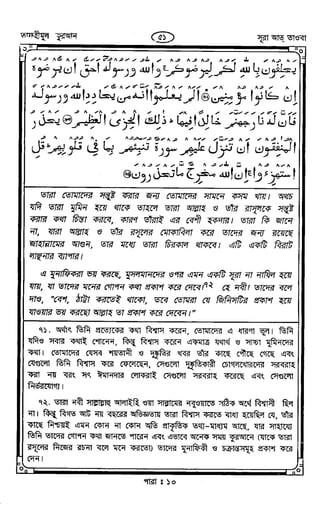 তাফহীমুল কুরআন
৫১
সূরা আত্ তাওবা
يَحْلِفُونَ بِاللهِ لَكُمْ لِيُرْضُوكُمْ ۚ وَاللهُ وَرَسُولُهُ أَحَقُّ أَنْ يُرْضُوهُ
إِنْ كَانُوا مُؤْمِنِينَ ۝ أَلَمْ يَعْلَمُوا أَنَّهُ مَنْ يُحَادِدِ اللهَ وَرَسُولَهُ
فَأَنَّ لَهُ نَارَ جَهَنَّمَ خَالِدًا فِيهَا ۚ ذَٰلِكَ الْخِزْيُ الْعَظِيمُ ۝ يَحْذَرُ
الْمُنْفِقُونَ أَنْ تُنَزَّلَ عَلَيْهِمْ سُورَةٌ تُنَبِّئُهُمْ بِمَا فِي قُلُوبِهِمْ ۚ قُلِ
اسْتَهْزِءُوا ۚ إِنَّ اللهَ مُخْرِجٌ مَا تَحْذَرُونَ ۝
তারা তোমাদের সন্তুষ্ট করার জন্য তোমাদের সামনে কসম খায়। অথচ
যদি তারা মুমিন হয়ে থাকে তাহলে তারা আল্লাহ ও তাঁর রাসূলকে সন্তুষ্ট
করার কথা চিন্তা করবে, কারণ তাঁরাই এর বেশী হকদার। তারা কি জানে
না, যারা আল্লাহ ও তাঁর রসূলের মোকাবিলা করে তাদের জন্য রয়েছে
জাহান্নামের আগুন, তার মধ্যে তারা চিরকাল থাকবে। এটি একটি বিরাট
লাঞ্ছনার ব্যাপার।
এ মুনাফিকরা ভয় করছে, মুসলমানদের ওপর এমন একটি সূরা না নাযিল হয়ে
যায়, যা তাদের মনের গোপন কথা প্রকাশ করে দেবে।৭২ হে নবী! তাদের বলে
দাও, “বেশ, ঠাট্টা করতেই থাকো, তবে তোমরা যে জিনিসটির প্রকাশ হয়ে
যাওয়ার ভয় করছো আল্লাহ তা প্রকাশ করে দেবেন।”
৭১. অর্থাৎ তিনি প্রত্যেকের কথা বিশ্বাস করেন, তোমাদের এ ধারণা ভুল। তিনি
যদিও সবার কথাই শোনেন, কিন্তু বিশ্বাস করেন একমাত্র যথার্থ ও সাচ্চা মুমিনদের
কথা। তোমাদের যেসব শয়তানী ও দুষ্কৃতির খবর তাঁর কাছে পৌঁছে গেছে এবং
যেগুলো তিনি বিশ্বাস করে ফেলেছেন, সেগুলো দুষ্কৃতিকারী চোগলখোরদের সরবরাহ
করা নয় বরং সৎ ঈমানদার লোকরাই সেগুলো সরবরাহ করেছে এবং সেগুলো
নির্ভরযোগ্য।
৭২. তারা নবী সাল্লাল্লাহু আলাইহি ওয়া সাল্লামের নবুওয়াতে সঠিক অর্থে বিশ্বাসী ছিল
না। কিন্তু বিগত আট নয় বছরের অভিজ্ঞতায় তারা বিশ্বাস করতে বাধ্য হয়েছিল যে, তাঁর
কাছে নিশ্চয়ই এমন কোন না কোন অতি প্রাকৃতিক তথ্য-মাধ্যম আছে, যার সাহায্যে
তিনি তাদের গোপন কথা জানতে পারেন এবং এভাবে অনেক সময় কুরআনে (যাকে তারা
রসূলের নিজের রচনা বলে মনে করতো) তাদের মুনাফিকী ও চক্রান্তসমূহ প্রকাশ করে
দেন।
পারা : ১০